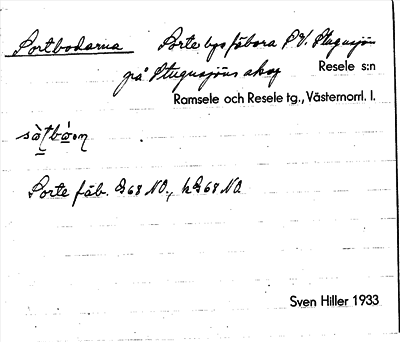 Sortbodarna Sorte bys fäbora S.V. Stugusjön
på Stugusjöns skog Resele s:n
Ramsele och Resele tg., Västernorrl. l.
Sorte fäb. 68 NO.,  68 NO
Sven Hiller 1933